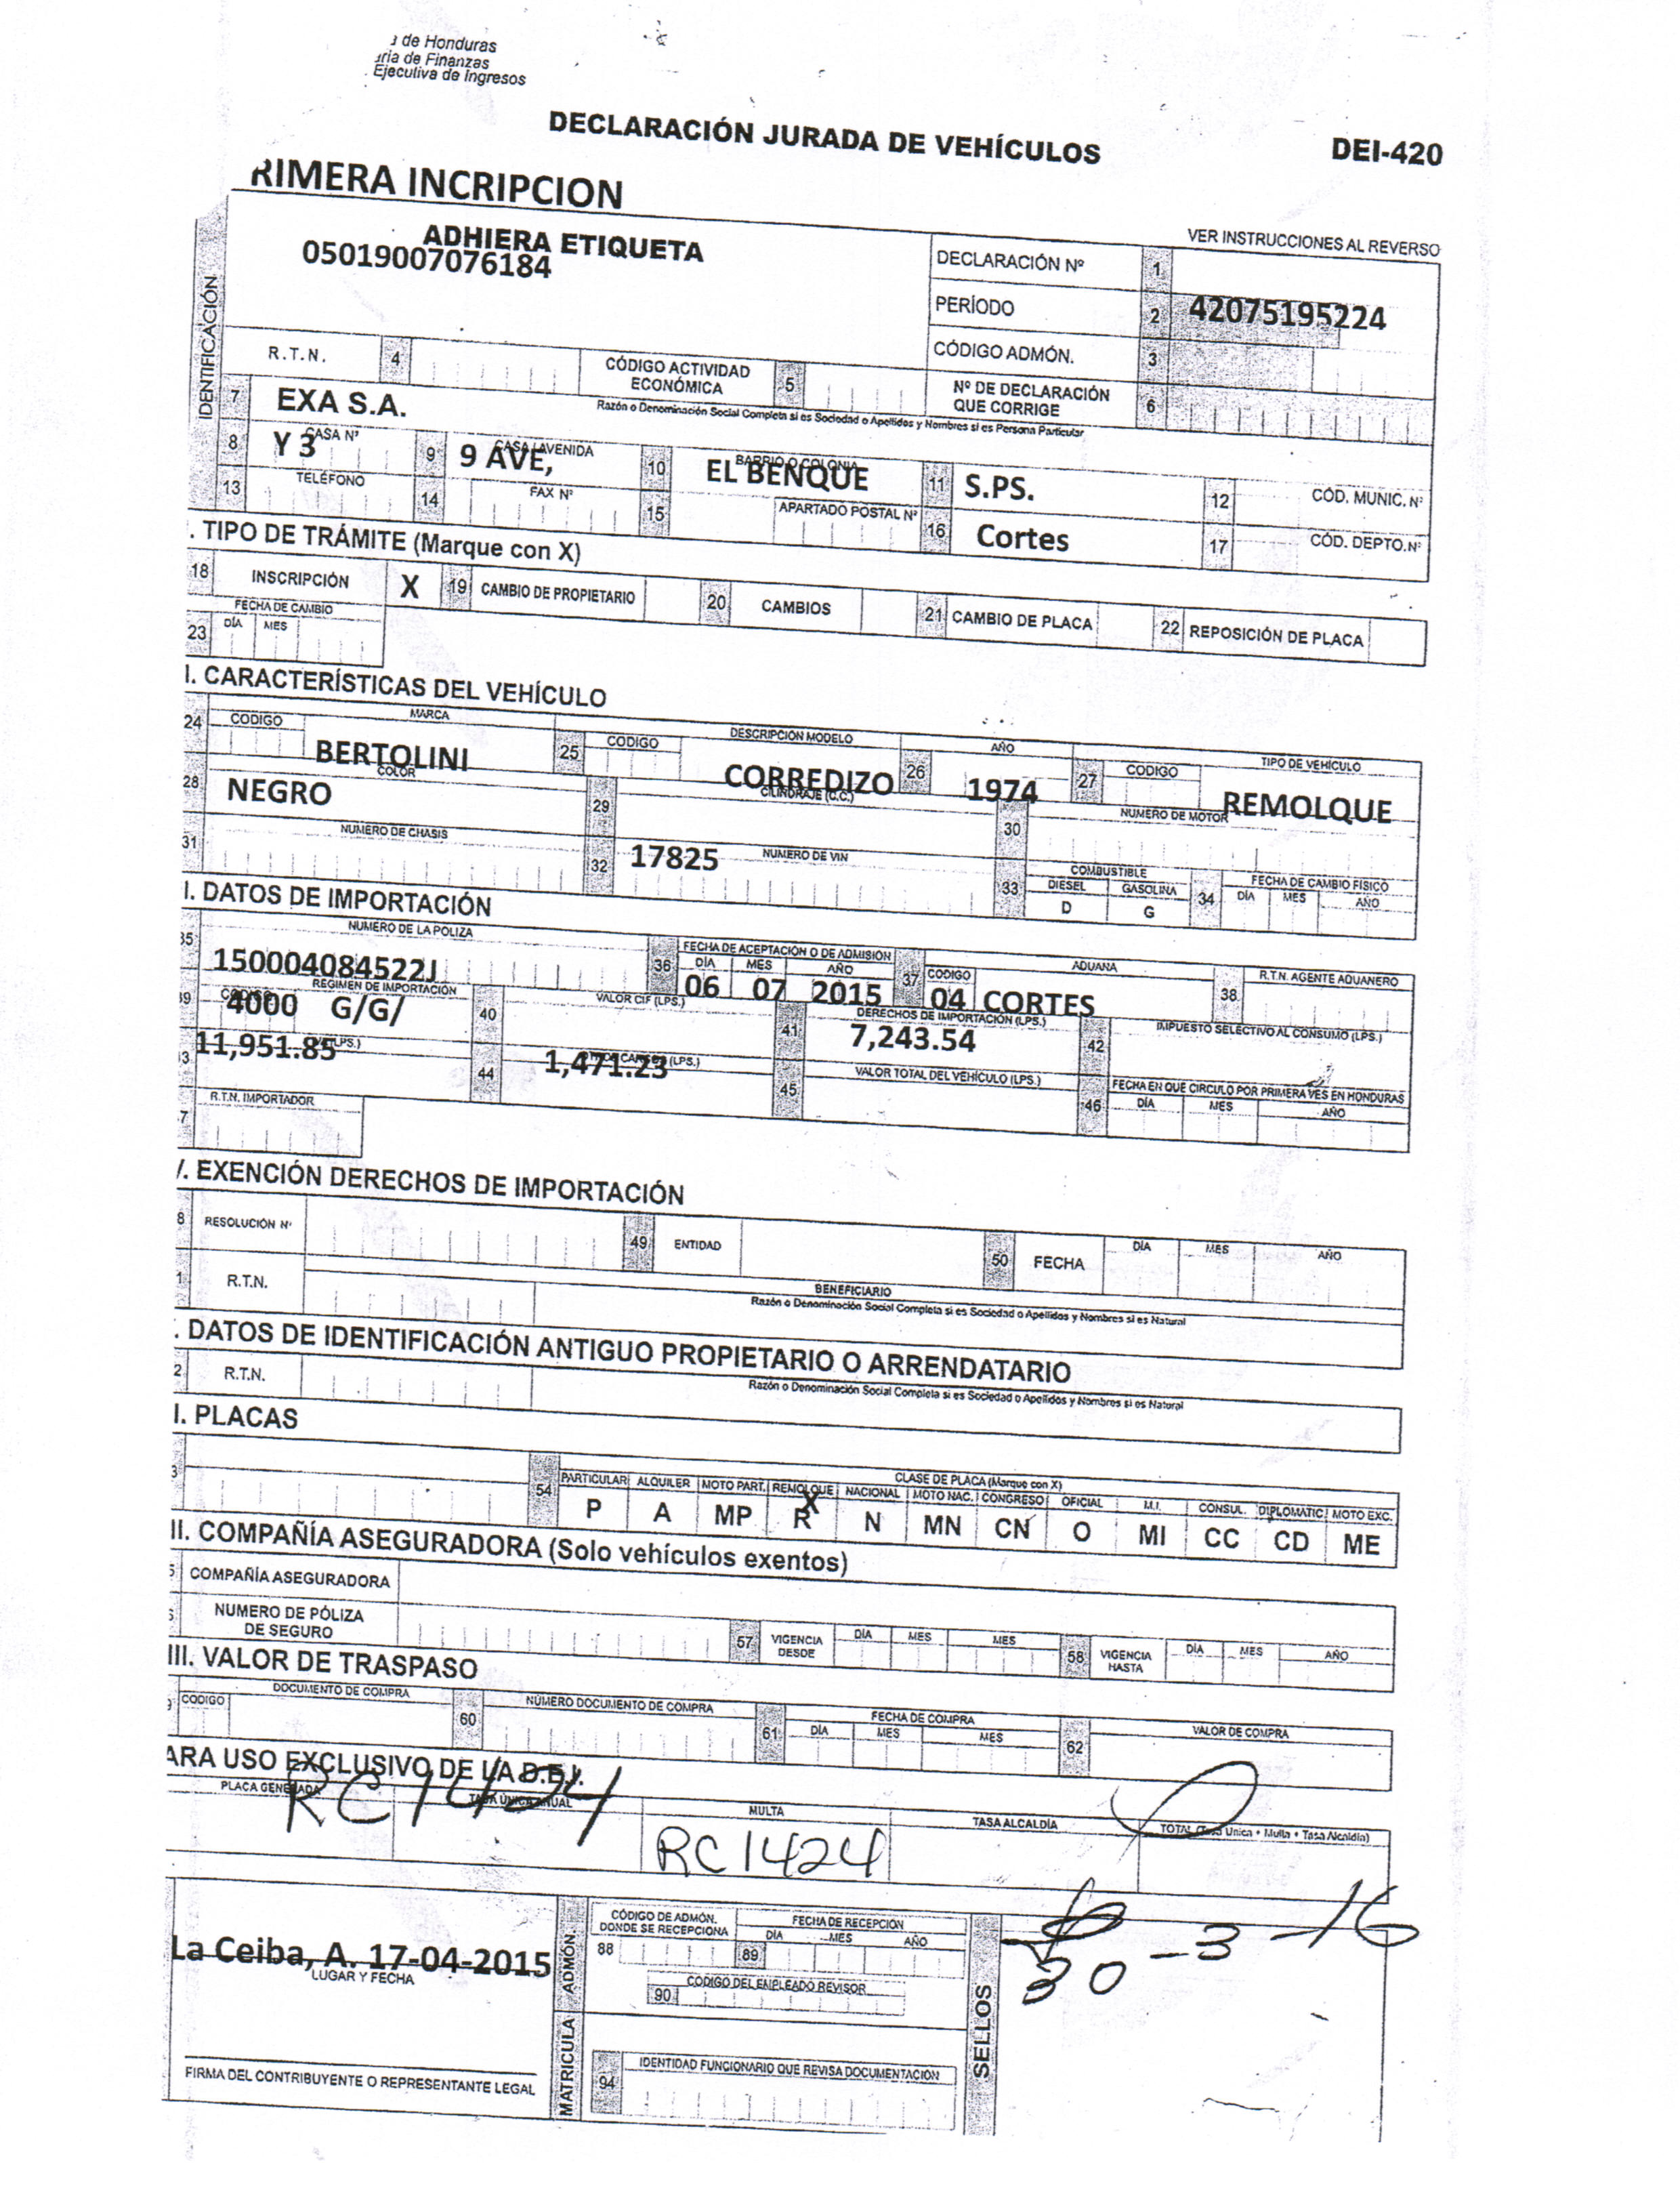 a de Honduras
aria de Finanzas
Ejecutiva de Ingresos
DECLARACIÓN JURADA DE VEHÍCULOS DEI-420
RIMERA INCRIPCION
VER INSTRUCCIONES AL REVERSO
IDENTIFICACIÓN
ADHIERA ETIQUETA
05019007076184
DECLARACIÓN Nº 1
PERÍODO 2 42075195224
CÓDIGO ADMÓN. 3
R.T.N. 4 CÓDIGO ACTIVIDAD ECONÓMICA 5 Nº DE DECLARACIÓN QUE CORRIGE 6
7 EXA S.A. Razón o Denominación Social Completa si es Sociedad o Apellidos y Nombres si es Persona Particular
8 CASA Nº Y 3 9 CASA AVENIDA 9 AVE, 10 BARRIO O COLONIA EL BENQUE 11 S.PS. 12 CÓD. MUNIC. Nº
13 TELÉFONO 14 FAX Nº 15 APARTADO POSTAL Nº 16 Cortes 17 CÓD. DEPTO. Nº
. TIPO DE TRÁMITE (Marque con X)
18 INSCRIPCIÓN X 19 CAMBIO DE PROPIETARIO 20 CAMBIOS 21 CAMBIO DE PLACA 22 REPOSICIÓN DE PLACA
23 FECHA DE CAMBIO DÍA MES
I. CARACTERÍSTICAS DEL VEHÍCULO
24 CODIGO MARCA BERTOLINI 25 CODIGO DESCRIPCIÓN MODELO CORREDIZO 26 AÑO 1974 27 CODIGO TIPO DE VEHÍCULO REMOLQUE
28 COLOR NEGRO 29 CILINDRAJE (C.C.) 30 NUMERO DE MOTOR
31 NUMERO DE CHASIS 32 17825 NUMERO DE VIN 33 COMBUSTIBLE DIESEL D GASOLINA G 34 FECHA DE CAMBIO FISICO DÍA MES AÑO
I. DATOS DE IMPORTACIÓN
35 NUMERO DE LA POLIZA 150004084522J 36 FECHA DE ACEPTACIÓN O DE ADMISIÓN DÍA MES AÑO 06 07 2015 37 CODIGO ADUANA 04 CORTES 38 R.T.N. AGENTE ADUANERO
39 REGIMEN DE IMPORTACIÓN 4000 G/G/ 40 VALOR CIF (LPS.) 41 DERECHOS DE IMPORTACIÓN (LPS.) 7,243.54 42 IMPUESTO SELECTIVO AL CONSUMO (LPS.)
3 11,951.85 44 1,471.23 (LPS.) 45 VALOR TOTAL DEL VEHÍCULO (LPS.) 46 FECHA EN QUE CIRCULO POR PRIMERA VES EN HONDURAS DÍA MES AÑO
7 R.T.N. IMPORTADOR
/. EXENCIÓN DERECHOS DE IMPORTACIÓN
8 RESOLUCIÓN Nº 49 ENTIDAD 50 FECHA DÍA MES AÑO
1 R.T.N. BENEFICIARIO
Razón o Denominación Social Completa si es Sociedad o Apellidos y Nombres si es Natural
. DATOS DE IDENTIFICACIÓN ANTIGUO PROPIETARIO O ARRENDATARIO
2 R.T.N. Razón o Denominación Social Completa si es Sociedad o Apellidos y Nombres si es Natural
I. PLACAS
3 54 CLASE DE PLACA (Marque con X)
PARTICULAR ALQUILER MOTO PART. REMOLQUE NACIONAL MOTO NAC. CONGRESO OFICIAL M.I. CONSUL. DIPLOMATIC MOTO EXC.
X
P A MP R N MN CN O MI CC CD ME
II. COMPAÑÍA ASEGURADORA (Solo vehículos exentos)
5 COMPAÑÍA ASEGURADORA
6 NUMERO DE PÓLIZA DE SEGURO 57 VIGENCIA DESDE DÍA MES MES 58 VIGENCIA HASTA DÍA MES AÑO
III. VALOR DE TRASPASO
9 CODIGO DOCUMENTO DE COMPRA 60 NÚMERO DOCUMENTO DE COMPRA 61 FECHA DE COMPRA DÍA MES MES 62 VALOR DE COMPRA
ARA USO EXCLUSIVO DE LA D.E.I.
PLACA GENERADA RC1424 TASA ÚNICA ANUAL MULTA TASA ALCALDÍA TOTAL (Tasa Unica + Multa + Tasa Alcaldía)
RC1424
La Ceiba, A. 17-04-2015
LUGAR Y FECHA
FIRMA DEL CONTRIBUYENTE O REPRESENTANTE LEGAL
MATRICULA ADMÓN.
CÓDIGO DE ADMÓN. DONDE SE RECEPCIONA 88 FECHA DE RECEPCIÓN DÍA MES AÑO 89
90 CODIGO DEL EMPLEADO REVISOR
94 IDENTIDAD FUNCIONARIO QUE REVISA DOCUMENTACIÓN
SELLOS
30-3-16